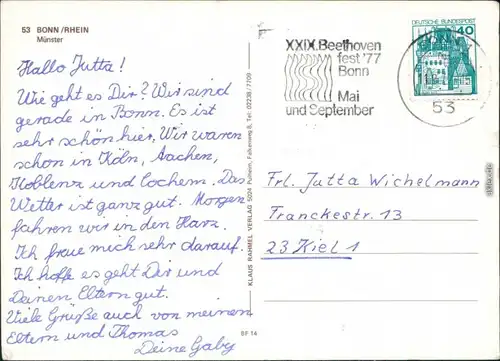 53 BONN/RHEIN
Münster
Hallo Jutta!
Wie geht es Dir? Wir sind
gerade in Bonn. Es ist
sehr schön hier. Wir waren
schon in Köln, Aachen,
Koblenz und Cochem. Das
Wetter ist ganz gut. Morgen
fahren wir in den Harz.
Ich freue mich sehr darauf.
Ich hoffe es geht Dir und
Deinen Eltern gut.
Viele Grüße auch von meinen
Eltern und Thomas
Deine Gaby
BF 14
KLAUS RAHMEL VERLAG 5024 Pulheim, Falkenweg 8, Tel: 02238/7700
XXIX. Beethoven
fest '77
Bonn
Mai
und September
53
DEUTSCHE BUNDESPOST
40
Frl. Jutta Wichelmann
Franckestr. 13
23 Kiel 1